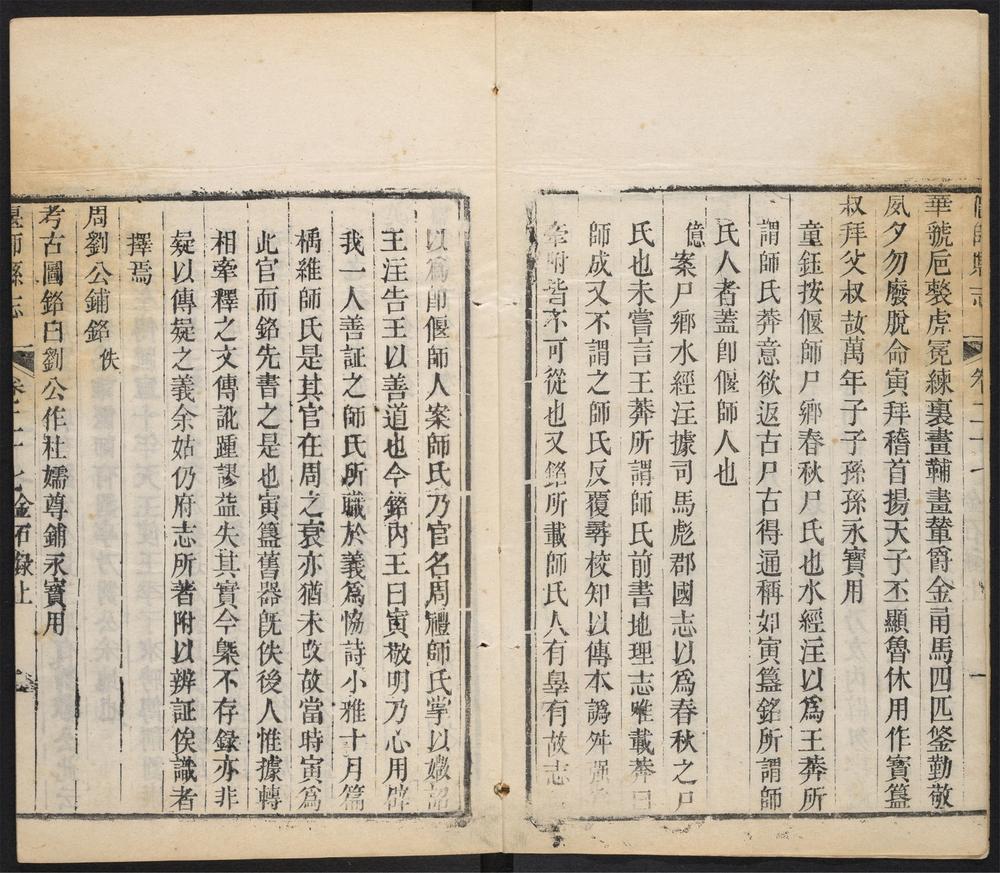 偃師縣志 卷二十七 一
華虢㔾㲃虎冟練裏畫䩉畫轚爵金甬馬四匹鋚勤敬
夙夕勿廢朕命寅拜稽首揚天子丕顯魯休用作寶簋
叔拜父叔㪅萬年子子孫孫永寶用
童鈺按偃師尸鄉春秋尸氏也水經注以爲王莽所
謂師氏莽意欲返古尸古得通稱如寅簋銘所謂師
氏人者蓋即偃師人也
億案尸鄉水經注據司馬彪郡國志以爲春秋之尸
氏也未嘗言王莽所謂師氏前書地理志唯載莽曰
師成又不謂之師氏反覆尋校知以傳本譌舛強
牽附皆不可從也又銘所載師氏人有辠有故志
以爲即偃師人案師氏乃官名周禮師氏掌以媺詔
王注告王以善道也今銘內王曰寅敬明乃心用辟
我一人善証之師氏所職於義爲恊詩小雅十月篇
楀維師氏是其官在周之衰亦猶未改故當時寅爲
此官而銘先書之是也寅簋舊器旣佚後人惟據轉
相牽釋之文傳訛踵謬益失其實今槩不存録亦非
疑以傳疑之義余姑仍府志所著附以辨証俟識者
擇焉
周劉公鋪銘 佚
考古圖銘曰劉公作杜嬬尊鋪永寶用
偃師縣志 卷二十七 金石録上